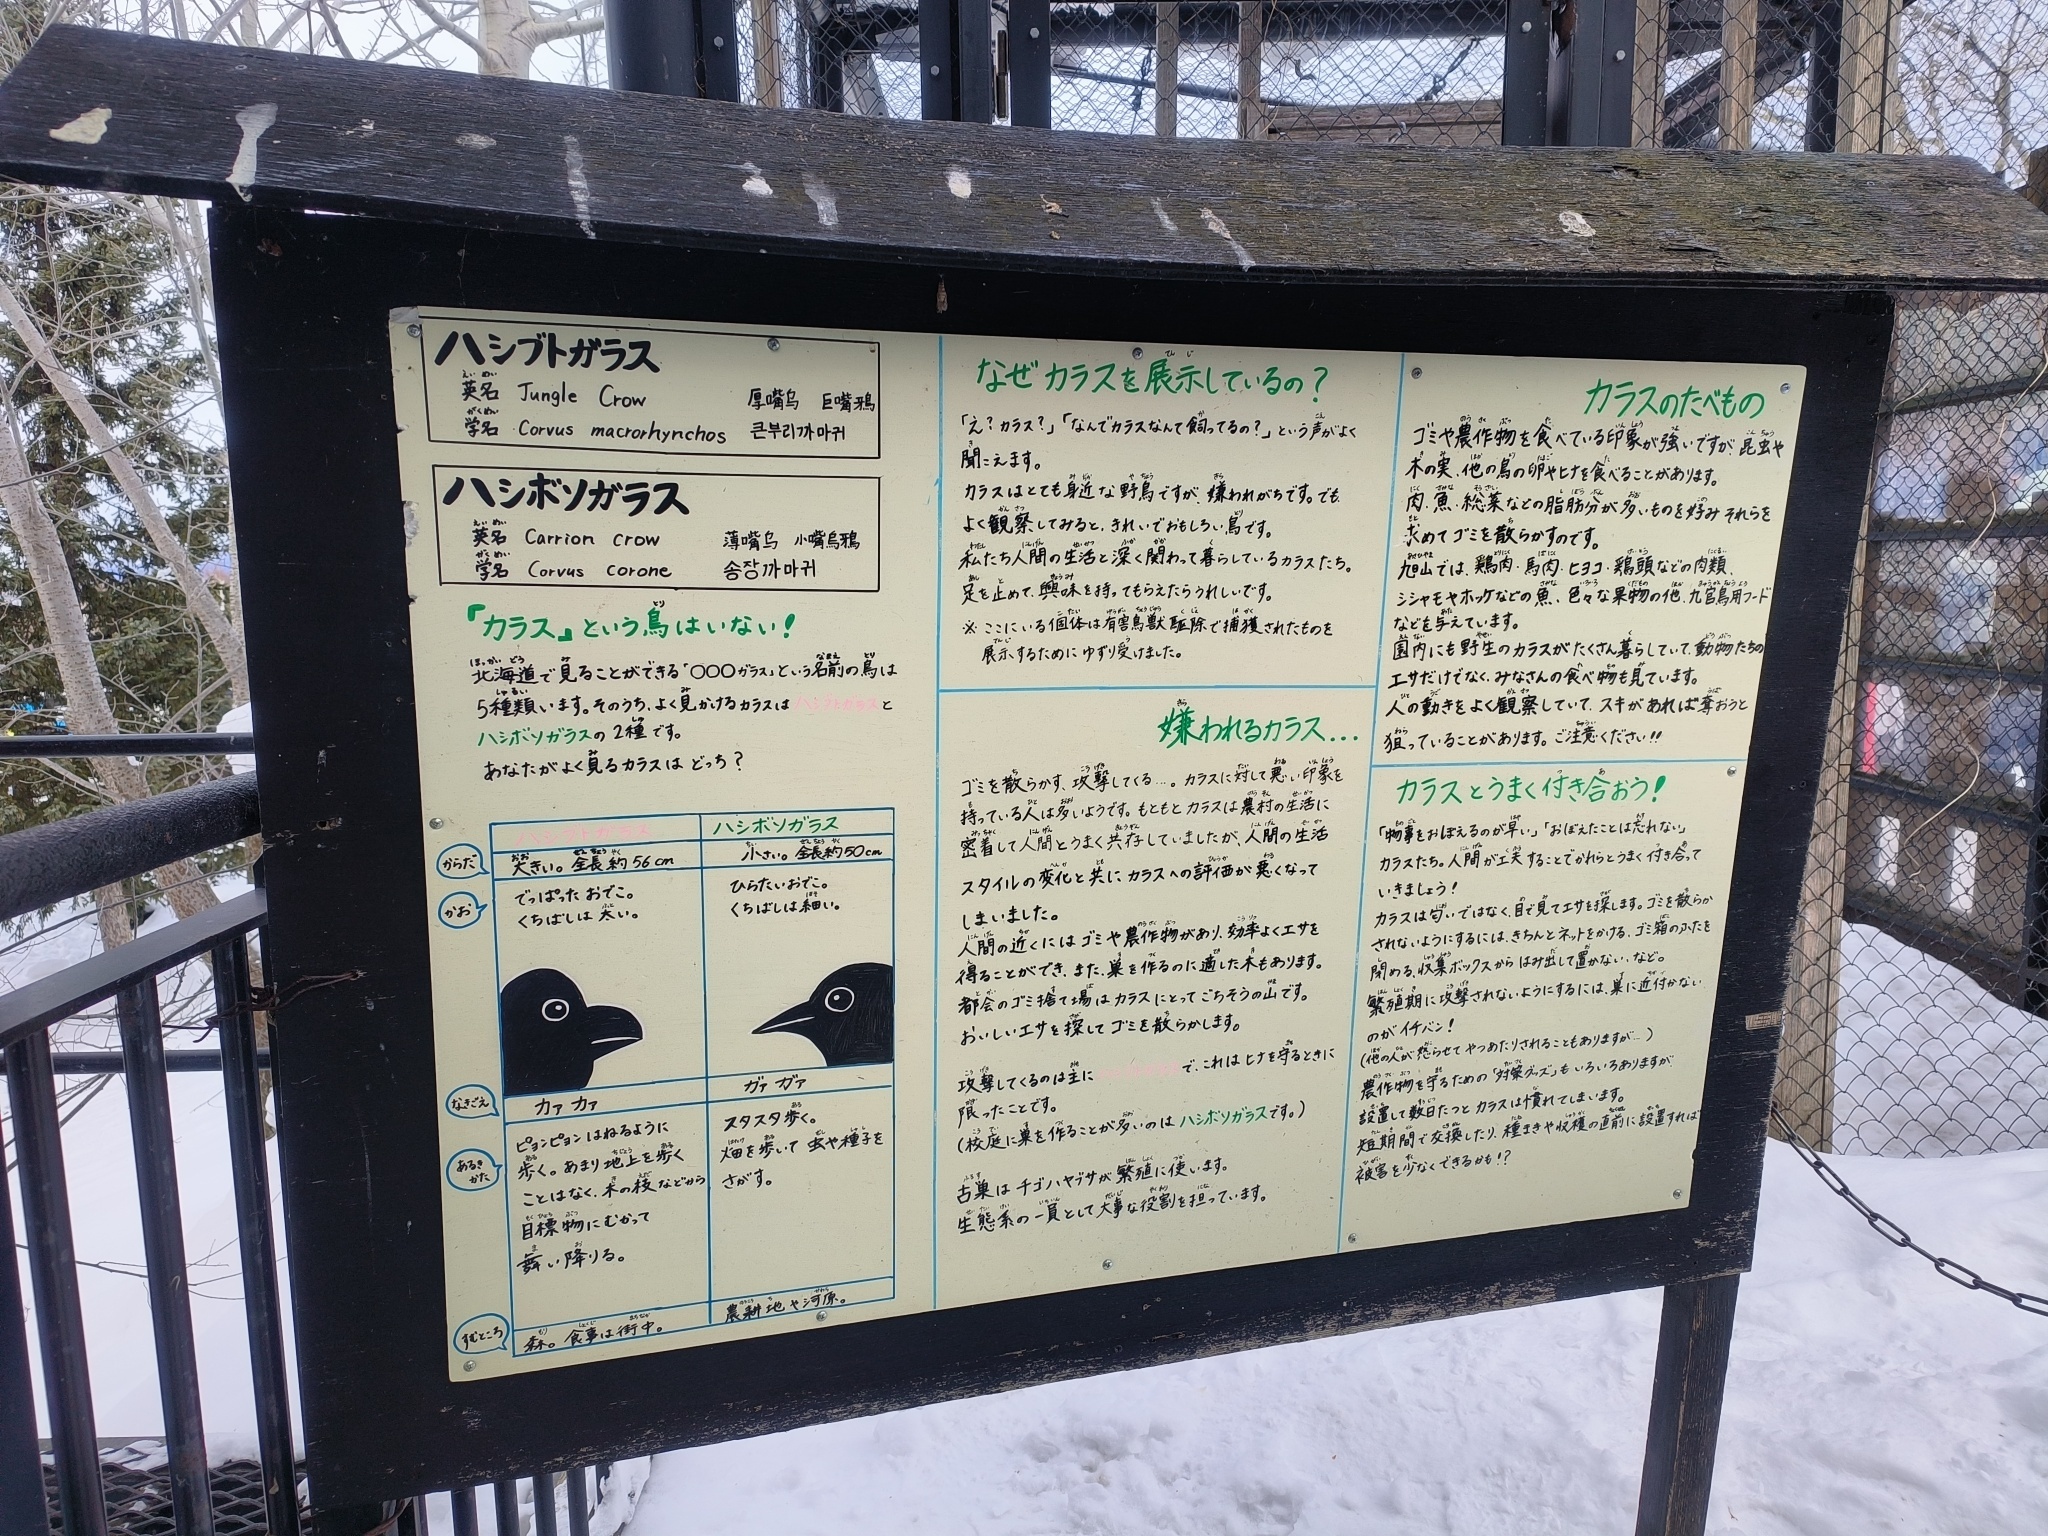 ハシブトガラス
英名 Jungle Crow 厚嘴乌 巨嘴鴉
学名 Corvus macrorhynchos 큰부리까마귀
ハシボソガラス
英名 Carrion crow 薄嘴乌 小嘴烏鴉
学名 Corvus corone 송장까마귀
『カラス』という鳥はいない!
北海道で見ることができる「〇〇〇ガラス」という名前の鳥は
5種類います。そのうち、よく見かけるカラスはハシブトガラスと
ハシボソガラスの2種です。
あなたがよく見るカラスはどっち?
ハシブトガラス ハシボソガラス
からだ 大きい。全長約56cm 小さい。全長約50cm
かお でっぱったおでこ。 ひらたいおでこ。
くちばしは太い。 くちばしは細い。
なきごえ カァ カァ ガァ ガァ
あるきかた
ピョンピョンはねるように
歩く。あまり地上を歩く
ことはなく、木の枝などから
目標物にむかって
舞い降りる。
スタスタ歩く。
畑を歩いて虫や種子を
さがす。
すむところ 森。食事は街中。 農耕地や河原。
なぜカラスを展示しているの?
「え?カラス?」「なんでカラスなんて飼ってるの?」という声がよく
聞こえます。
カラスはとても身近な野鳥ですが、嫌われがちです。でも、
よく観察してみると、きれいでおもしろい鳥です。
私たち人間の生活と深く関わって暮らしているカラスたち。
足を止めて、興味を持ってもらえたらうれしいです。
※ここにいる個体は有害鳥獣駆除で捕獲されたものを
展示するためにゆずり受けました。
嫌われるカラス...
ゴミを散らかす、攻撃してくる…。カラスに対して悪い印象を
持っている人は多いようです。もともとカラスは農村の生活に
密着して人間とうまく共存していましたが、人間の生活
スタイルの変化と共にカラスへの評価が悪くなって
しまいました。
人間の近くにはゴミや農作物があり、効率よくエサを
得ることができ、また、巣を作るのに適した木もあります。
都会のゴミ捨て場はカラスにとってごちそうの山です。
おいしいエサを探してゴミを散らかします。
攻撃してくるのは主にハシブトガラスで、これはヒナを守るときに
限ったことです。
(校庭に巣を作ることが多いのはハシボソガラスです。)
古巣はチゴハヤブサが繁殖に使います。
生態系の一員として大事な役割を担っています。
カラスのたべもの
ゴミや農作物を食べている印象が強いですが、昆虫や
木の実、他の鳥の卵やヒナを食べることがあります。
肉、魚、総菜などの脂肪分が多いものを好み それらを
求めてゴミを散らかすのです。
旭山では、鶏肉・馬肉・ヒヨコ・鶏頭などの肉類、
シシャモやホッケなどの魚、色々な果物の他、九官鳥用フード
などを与えています。
園内にも野生のカラスがたくさん暮らしていて、動物たちの
エサだけでなく、みなさんの食べ物も見ています。
人の動きをよく観察していて、スキがあれば奪おうと
狙っていることがあります。ご注意ください!!
カラスとうまく付き合おう!
「物事をおぼえるのが早い」「おぼえたことは忘れない」
カラスたち。人間が工夫することでかれらとうまく付き合って
いきましょう!
カラスは匂いではなく、目で見てエサを探します。ゴミを散らか
されないようにするには、きちんとネットをかける、ゴミ箱のふたを
閉める、収集ボックスからはみ出して置かない、など。
繁殖期に攻撃されないようにするには、巣に近付かない
のがイチバン!
(他の人が怒らせてやつあたりされることもありますが…)
農作物を守るための「対策グッズ」もいろいろありますが、
設置して数日たつとカラスは慣れてしまいます。
短期間で交換したり、種まきや収穫の直前に設置すれば
被害を少なくできるかも!?